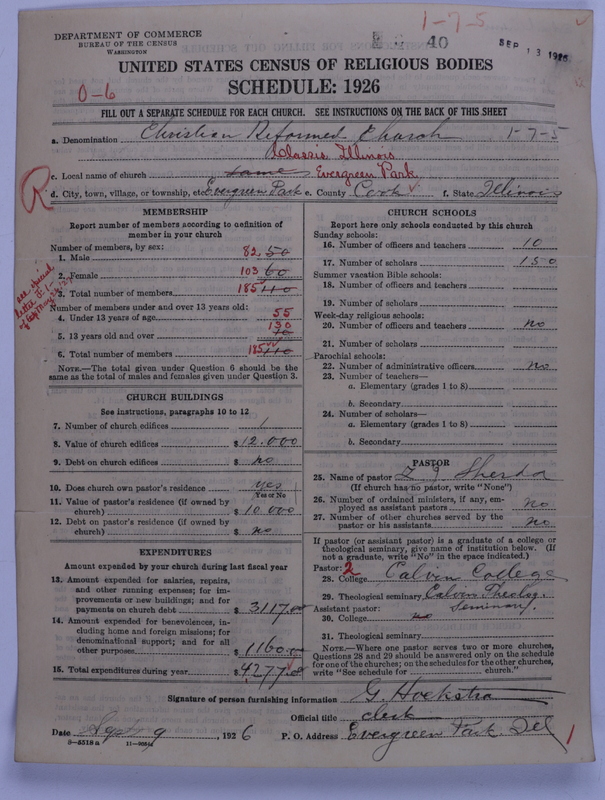 1-7-5
DEPARTMENT OF COMMERCE
BUREAU OF THE CENSUS
WASHINGTON
40
SEP 13 1926
UNITED STATES CENSUS OF RELIGIOUS BODIES
SCHEDULE: 1926
0-6
FILL OUT A SEPARATE SCHEDULE FOR EACH CHURCH. SEE INSTRUCTIONS ON THE BACK OF THIS SHEET
a. Denomination Christian Reformed Church 1-7-5
Classis Illinois
c. Local name of church same Evergreen Park
R
d. City, town, village, or township, etc. Evergreen Park e. County Cook f. State Illinois
MEMBERSHIP
Report number of members according to definition of member in your church
Number of members, by sex:
1. Male 82 50
2. Female 103 60
3. Total number of members 185 110
Number of members under and over 13 years old:
4. Under 13 years of age 55
5. 13 years old and over 130
6. Total number of members 185 110
NOTE.—The total given under Question 6 should be
same as the total of males and females given under Question 3.
CHURCH BUILDINGS
See instructions, paragraphs 10 to 12
7. Number of church edifices 1
8. Value of church edifices $ 12.000
9. Debt on church edifices $ no
10. Does church own pastor's residence yes
Yes or No
11. Value of pastor's residence (if owned by
church) $ 10 000
12. Debt on pastor's residence (if owned by
church) $ no
EXPENDITURES
Amount expended by your church during last fiscal year
13. Amount expended for salaries, repairs,
and other running expenses; for im-
provements or new buildings; and for
payments on church debt $ 3117.00
14. Amount expended for benevolences, in-
cluding home and foreign missions; for
denominational support; and for all
other purposes $ 1160.00
15. Total expenditures during year $ 4277.00
CHURCH SCHOOLS
Report here only schools conducted by this church
Sunday schools:
16. Number of officers and teachers 10
17. Number of scholars 150
Summer vacation Bible schools:
18. Number of officers and teachers
19. Number of scholars
Week-day religious schools:
20. Number of officers and teachers no
21. Number of scholars
Parochial schools:
22. Number of administrative officers no
23. Number of teachers—
a. Elementary (grades 1 to 8)
b. Secondary
24. Number of scholars—
a. Elementary (grades 1 to 8)
b. Secondary
PASTOR
25. Name of pastor Z J Sherda
(If church has no pastor, write "None")
26. Number of ordained ministers, if any, em-
ployed as assistant pastors no
27. Number of other churches served by the
pastor or his assistants no
If pastor (or assistant pastor) is a graduate of a college or
theological seminary, give name of institution below. (If
not a graduate, write "No" in the space indicated.)
Pastor: 2
28. College Calvin College
29. Theological seminary Calvin Theolog.
Assistant pastor: Seminary.
30. College no
31. Theological seminary
NOTE.—Where one pastor serves two or more churches,
Questions 28 and 29 should be answered only on the schedule
for one of the churches; on the schedules for the other churches,
write "See schedule for church."
Signature of person furnishing information G. Hoekstra
Official title clerk
Date Sept 9, 1926 P. O. Address Evergreen Park. Ill